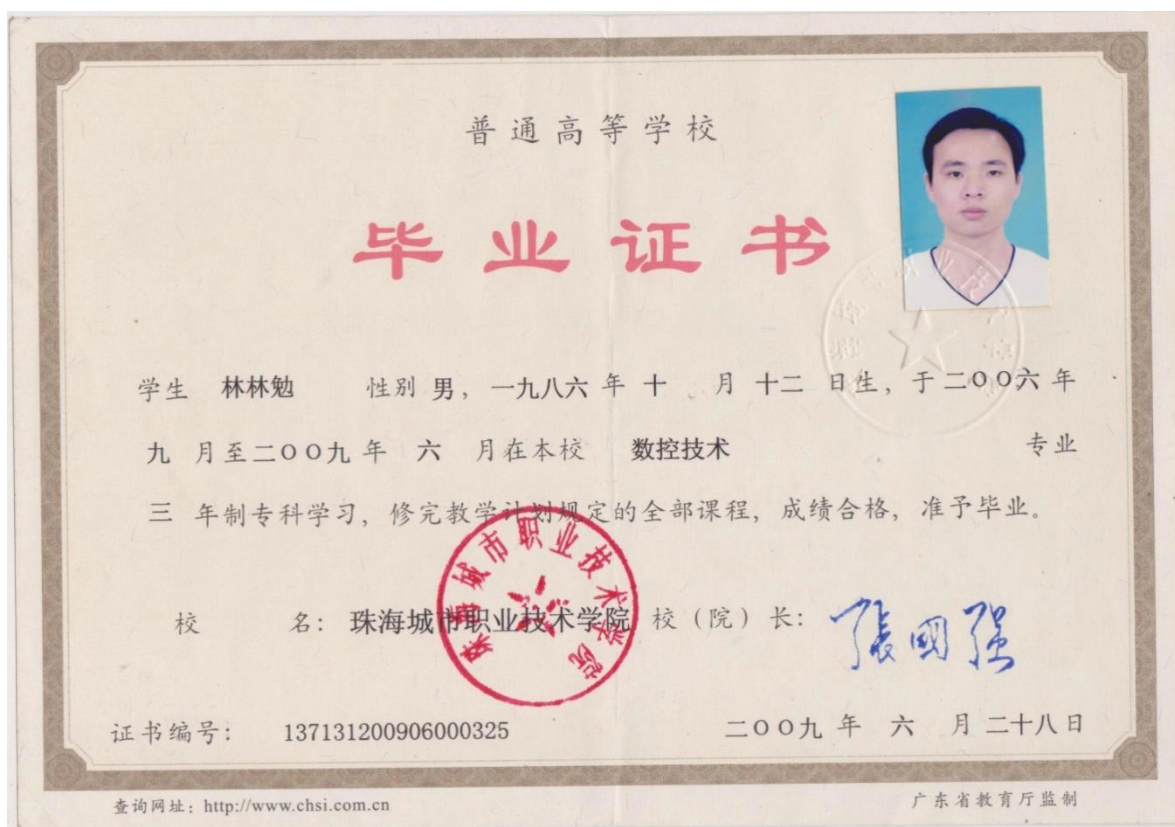 普通高等学校
毕业证书
学生 林林勉 性别 男，一九八六 年 十 月 十二 日生，于二〇〇六 年
九 月至二〇〇九 年 六 月在本校 数控技术 专业
三 年制专科学习，修完教学计划规定的全部课程，成绩合格，准予毕业。
珠海城市职业技术学院
校 名：珠海城市职业技术学院 校（院）长：張國强
证书编号： 137131200906000325 二〇〇九 年 六 月 二十八 日
查询网址：http://www.chsi.com.cn 广东省教育厅监制